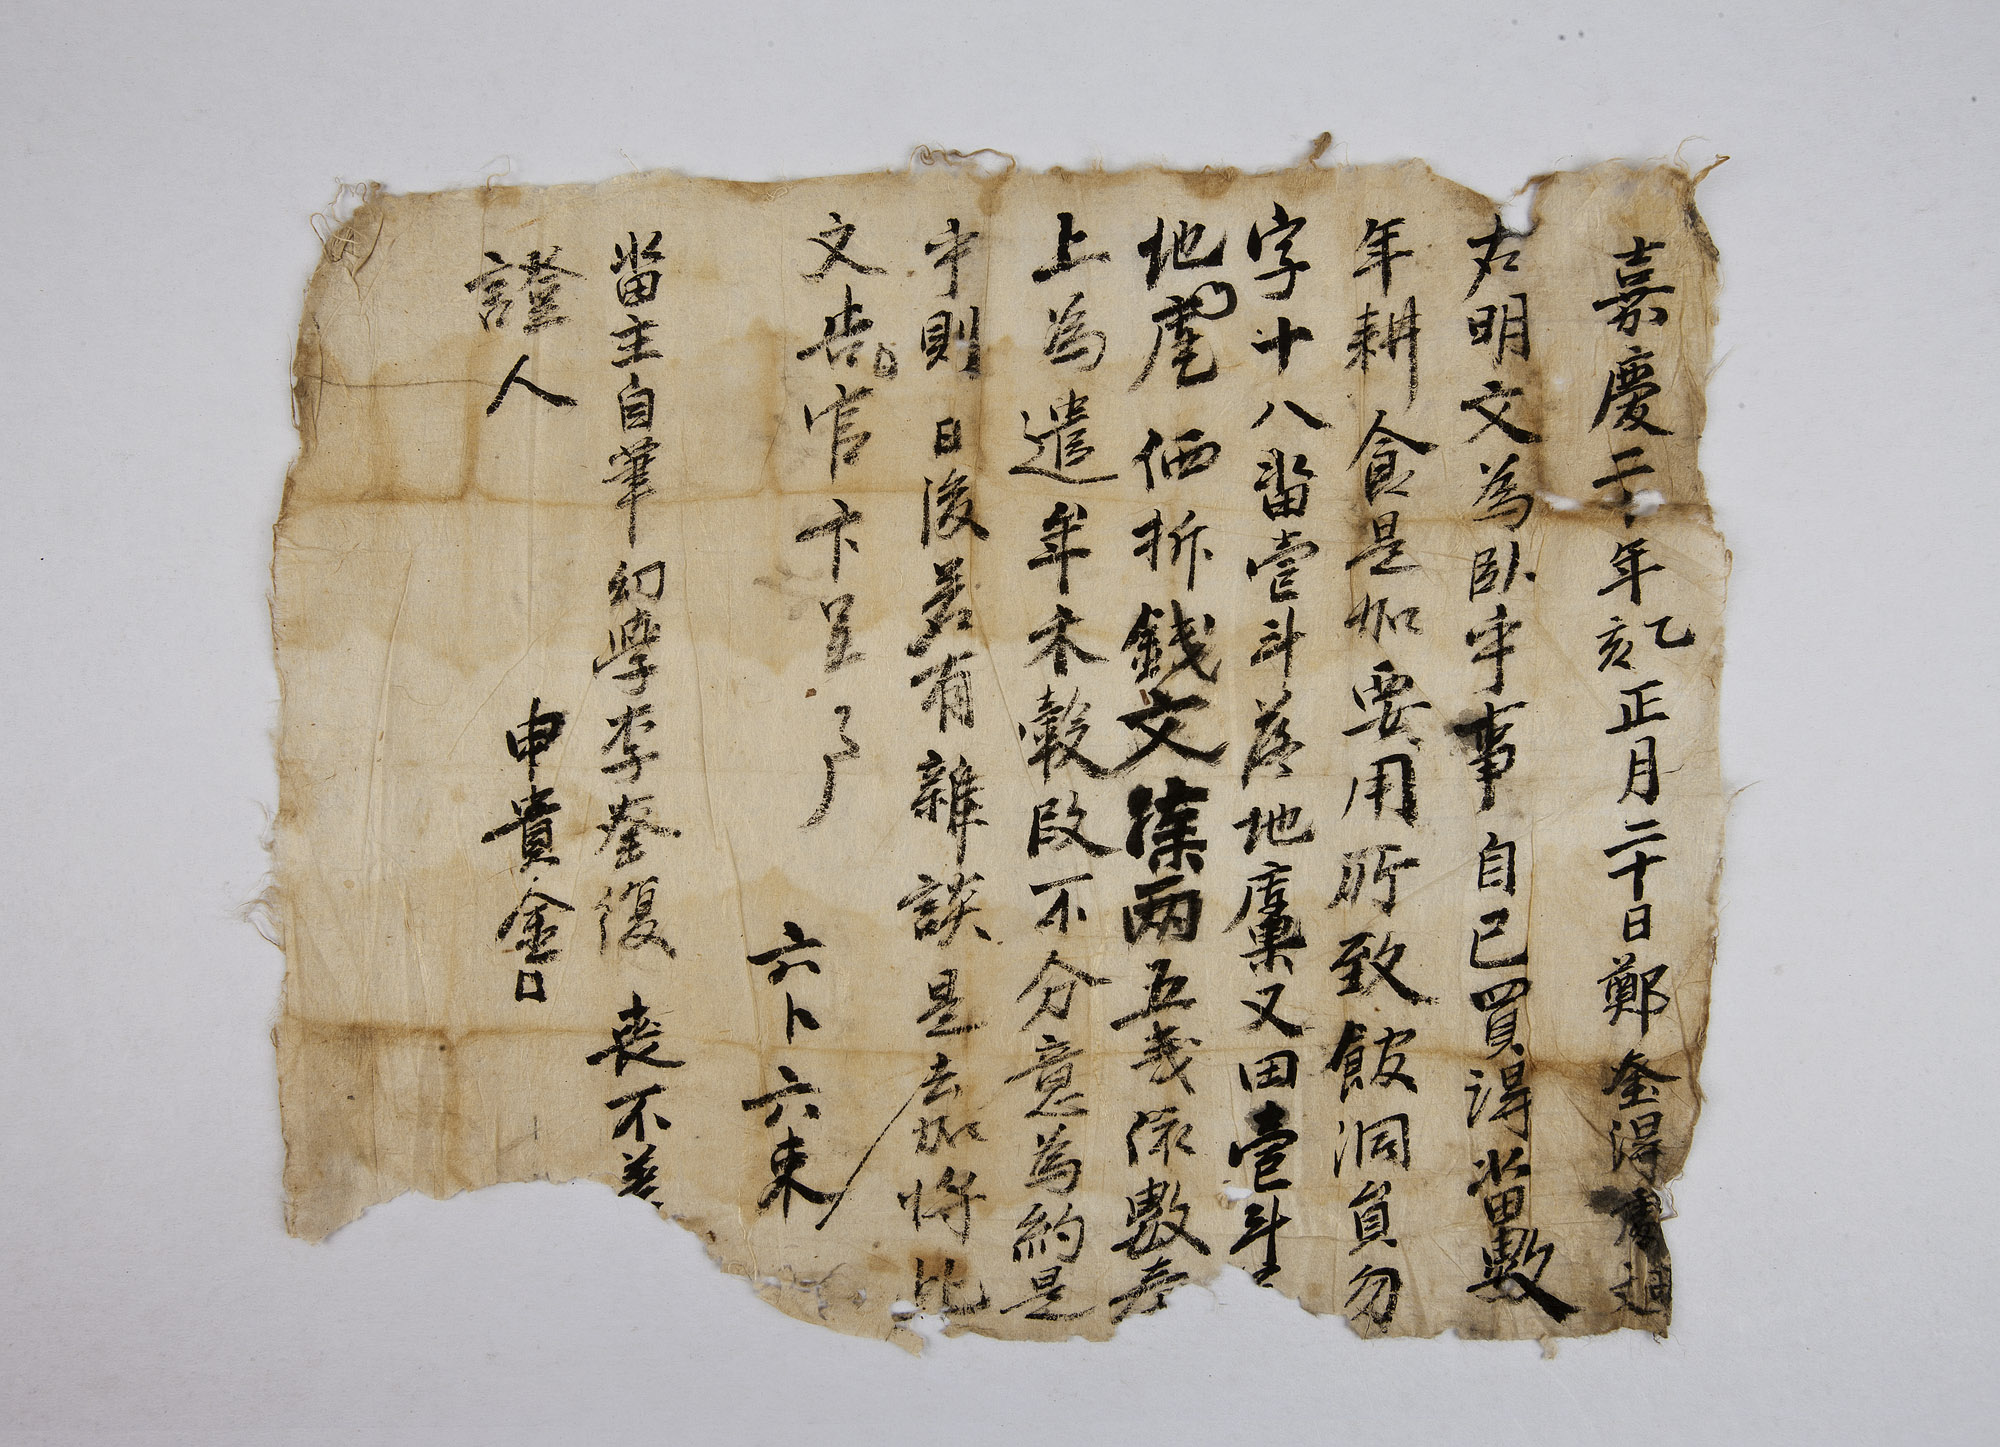 嘉慶二十年乙亥正月二十日鄭奎得處
右明文為臥乎事自己買得畓數
年耕食是如要用所致餕洞員勿
字十八畓壹斗落地庫果又田壹斗
地庫價折錢文拾兩五戔依數
上為遣年木穀段不分意為約是
乎則日後若有雜談是去加將此
文告官卞呈事
六卜六束
畓主自筆幼學李奎復喪不着
證人申貴金